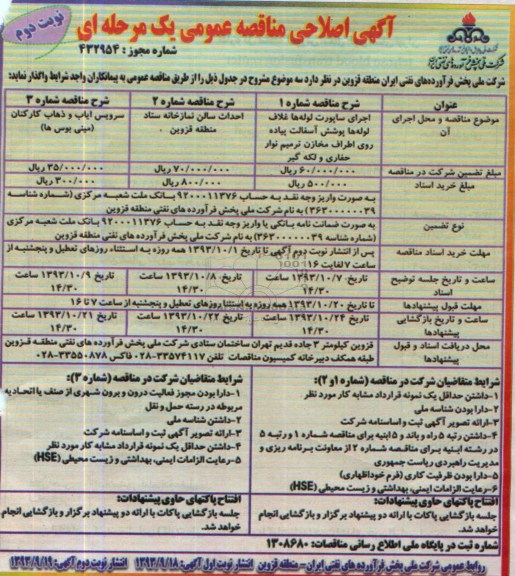 نوبت دوم
آگهی اصلاحی مناقصه عمومی یک مرحله ای
شماره مجوز : ۴۳۲۹۵۴
شرکت ملی پخش فرآورده‌های نفتی ایران منطقه قزوین در نظر دارد سه موضوع مشروح در جدول ذیل را از طریق مناقصه عمومی به پیمانکاران واجد شرایط واگذار نماید:
عنوان
شرح مناقصه شماره ۱
شرح مناقصه شماره ۲
شرح مناقصه شماره ۳
موضوع مناقصه و محل اجرای آن
اجرای ساپورت لوله‌ها غلاف لوله‌ها پوشش آسفالت پیاده روی اطراف مخازن ترمیم نوار حفاری و لکه گیر
احداث سالن نمازخانه ستاد منطقه قزوین
سرویس ایاب و ذهاب کارکنان (مینی بوس ها)
مبلغ تضمین شرکت در مناقصه
۶۰/۰۰۰/۰۰۰ ریال
۷۰/۰۰۰/۰۰۰ ریال
۳۵/۰۰۰/۰۰۰ ریال
مبلغ خرید اسناد
۵۰۰/۰۰۰ ریال
۸۰۰/۰۰۰ ریال
۳۰۰/۰۰۰ ریال
به صورت واریز وجه نقد به حساب ۹۲۰۰۰۱۱۳۷۶ بانک ملت شعبه مرکزی (شماره شناسه ۳۶۳۰۰۰۰۰۰۳۹) به نام شرکت ملی پخش فرآورده های نفتی منطقه قزوین
نوع تضمین
به صورت ضمانت نامه بانکی یا واریز وجه نقد به حساب ۹۲۰۰۰۱۱۳۷۶ بانک ملت شعبه مرکزی (شماره شناسه ۳۶۳۰۰۰۰۰۰۳۹) به نام شرکت ملی پخش فرآورده های نفتی منطقه قزوین
مهلت خرید اسناد مناقصه
پس از انتشار نوبت دوم آگهی تا تاریخ ۱۳۹۳/۱۰/۱ همه روزه به استثناء روزهای تعطیل و پنجشنبه از ساعت ۷ لغایت ۱۶
ساعت و تاریخ جلسه توضیح اسناد
تاریخ ۱۳۹۳/۱۰/۷ ساعت ۱۴/۳۰
تاریخ ۱۳۹۳/۱۰/۸ ساعت ۱۴/۳۰
تاریخ ۱۳۹۳/۱۰/۹ ساعت ۱۴/۳۰
مهلت قبول پیشنهادها
تا تاریخ ۱۳۹۳/۱۰/۲۰ همه روزه به استثنا روزهای تعطیل و پنجشنبه از ساعت ۷ تا ۱۶
ساعت و تاریخ بازگشایی پیشنهادها
تاریخ ۱۳۹۳/۱۰/۲۴ ساعت ۱۴/۳۰
تاریخ ۱۳۹۳/۱۰/۲۲ ساعت ۱۴/۳۰
تاریخ ۱۳۹۳/۱۰/۲۱ ساعت ۱۴/۳۰
محل دریافت اسناد و قبول پیشنهادها
قزوین کیلومتر ۳ جاده قدیم تهران ساختمان ستادی شرکت ملی پخش فرآورده های نفتی منطقه قزوین طبقه همکف دبیرخانه کمیسیون مناقصات تلفن ۳۳۵۷۴۱۱۷-۰۲۸ فاکس ۳۳۵۵۰۸۷۸-۰۲۸
شرایط متقاضیان شرکت در مناقصه (شماره ۱ و ۲):
۱-داشتن حداقل یک نمونه قرارداد مشابه کار مورد نظر
۲-دارا بودن شناسه ملی
۳-ارائه تصویر آگهی ثبت و اساسنامه شرکت
۴-داشتن رتبه ۵ راه و باند و ۵ ابنیه برای مناقصه شماره ۱ و رتبه ۵ در رشته ابنیه برای مناقصه شماره ۲ از معاونت برنامه ریزی و مدیریت راهبردی ریاست جمهوری
۵-دارا بودن ظرفیت کاری (فرم خوداظهاری)
۶-رعایت الزامات ایمنی، بهداشتی و زیست محیطی (HSE)
افتتاح پاکتهای حاوی پیشنهادات:
جلسه بازگشایی پاکات با ارائه دو پیشنهاد برگزار و بازگشایی انجام خواهد شد.
شرایط متقاضیان شرکت در مناقصه (شماره ۳):
۱-دارا بودن مجوز فعالیت درون و برون شهری از صنف یا اتحادیه مربوطه در رسته حمل و نقل
۲-داشتن شناسه ملی
۳-ارائه تصویر آگهی ثبت و اساسنامه شرکت
۴-داشتن حداقل یک نمونه قرارداد مشابه کار مورد نظر
۵-رعایت الزامات ایمنی، بهداشتی و زیست محیطی (HSE)
افتتاح پاکتهای حاوی پیشنهادات:
جلسه بازگشایی پاکات با ارائه دو پیشنهاد برگزار و بازگشایی انجام خواهد شد.
شماره ثبت در پایگاه ملی اطلاع رسانی مناقصات: ۱۳۰۸۶۸۰
روابط عمومی شرکت ملی پخش فرآورده های نفتی ایران- منطقه قزوین انتشار نوبت اول آگهی: ۱۳۹۳/۹/۱۸ انتشار نوبت دوم آگهی: ۱۳۹۳/۹/۱۹